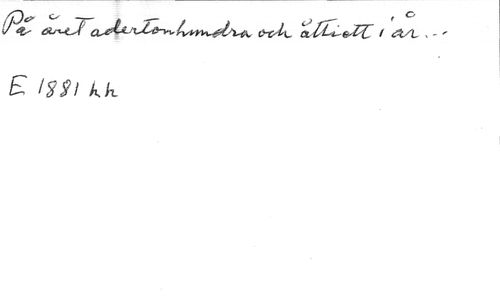 På året adertonhundra och åttiett i år...
E 1881 hh